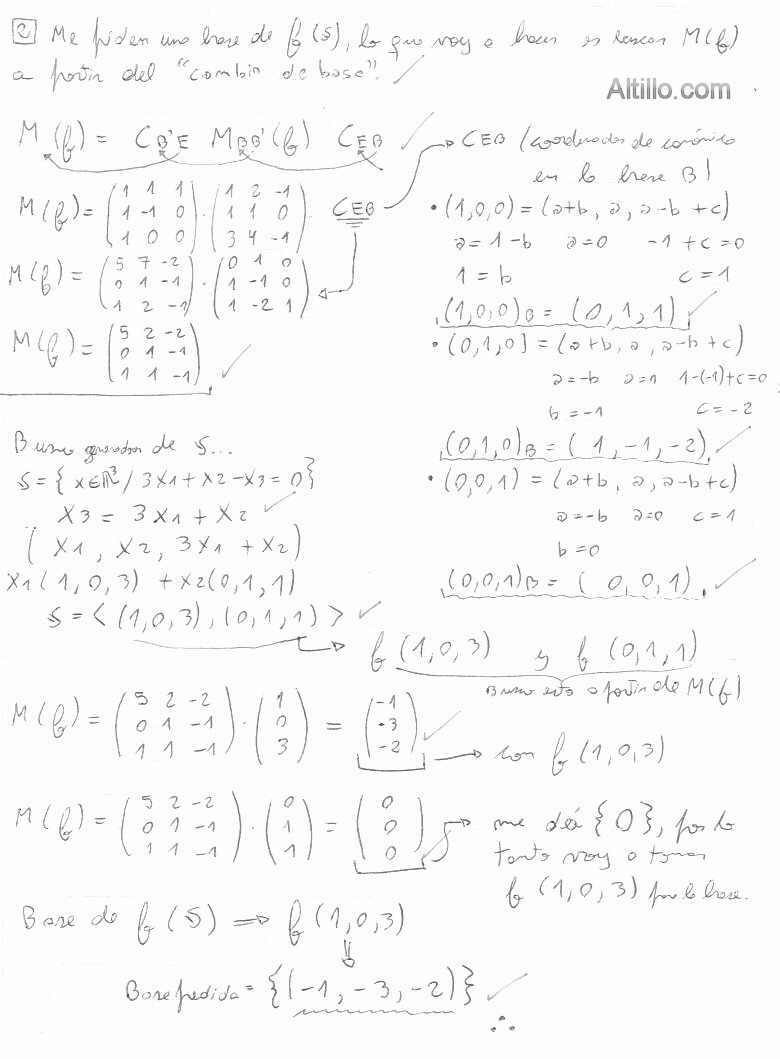 2 Me piden una base de f(S), lo que voy a hacer es buscar M(f)
a partir del "cambio de base".
Altillo.com
M(f) = C_B'E M_BB'(f) C_EB
→ C_EB (coordenadas de canónica
en la base B)
M(f) = (1 1 1; 1 -1 0; 1 0 0) · (1 2 -1; 1 1 0; 3 4 -1) · C_EB
M(f) = (5 7 -2; 0 1 -1; 1 2 -1) · (0 1 0; 1 -1 0; 1 -2 1)
M(f) = (5 2 -2; 0 1 -1; 1 1 -1)
• (1,0,0) = (a+b, a, a-b+c)
a=1-b a=0 -1+c=0
1=b c=1
(1,0,0)B = (0,1,1)
• (0,1,0) = (a+b, a, a-b+c)
a=-b a=1 1-(-1)+c=0
b=-1 c=-2
(0,1,0)B = (1,-1,-2)
• (0,0,1) = (a+b, a, a-b+c)
a=-b a=0 c=1
b=0
(0,0,1)B = (0,0,1)
Busco generadores de S...
S = { X∈ℝ³ / 3X1 + X2 - X3 = 0 }
X3 = 3X1 + X2
(X1, X2, 3X1 + X2)
X1(1,0,3) + X2(0,1,1)
S = < (1,0,3), (0,1,1) >
→ f(1,0,3) y f(0,1,1)
Busco esto a partir de M(f)
M(f) = (5 2 -2; 0 1 -1; 1 1 -1) · (1; 0; 3) = (-1; -3; -2) → con f(1,0,3)
M(f) = (5 2 -2; 0 1 -1; 1 1 -1) · (0; 1; 1) = (0; 0; 0) → me dá {0}, por lo
tanto voy a tomar
f(1,0,3) por la base.
Base de f(S) ⇒ f(1,0,3)
⇓
Base pedida = {(-1,-3,-2)}
∴